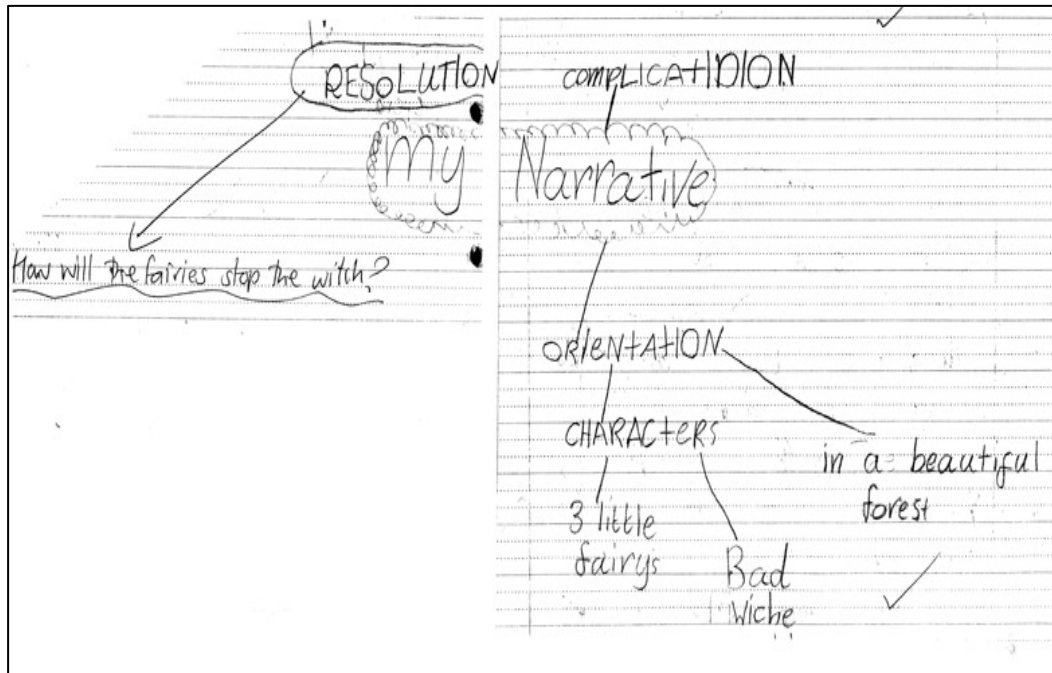 RESOLUTION
COMPLICATIDION
My Narrative
How will the fairies stop the witch?
ORIENTATION
CHARACTERS
in a beautiful
forest
3 little
fairys
Bad
Wiche